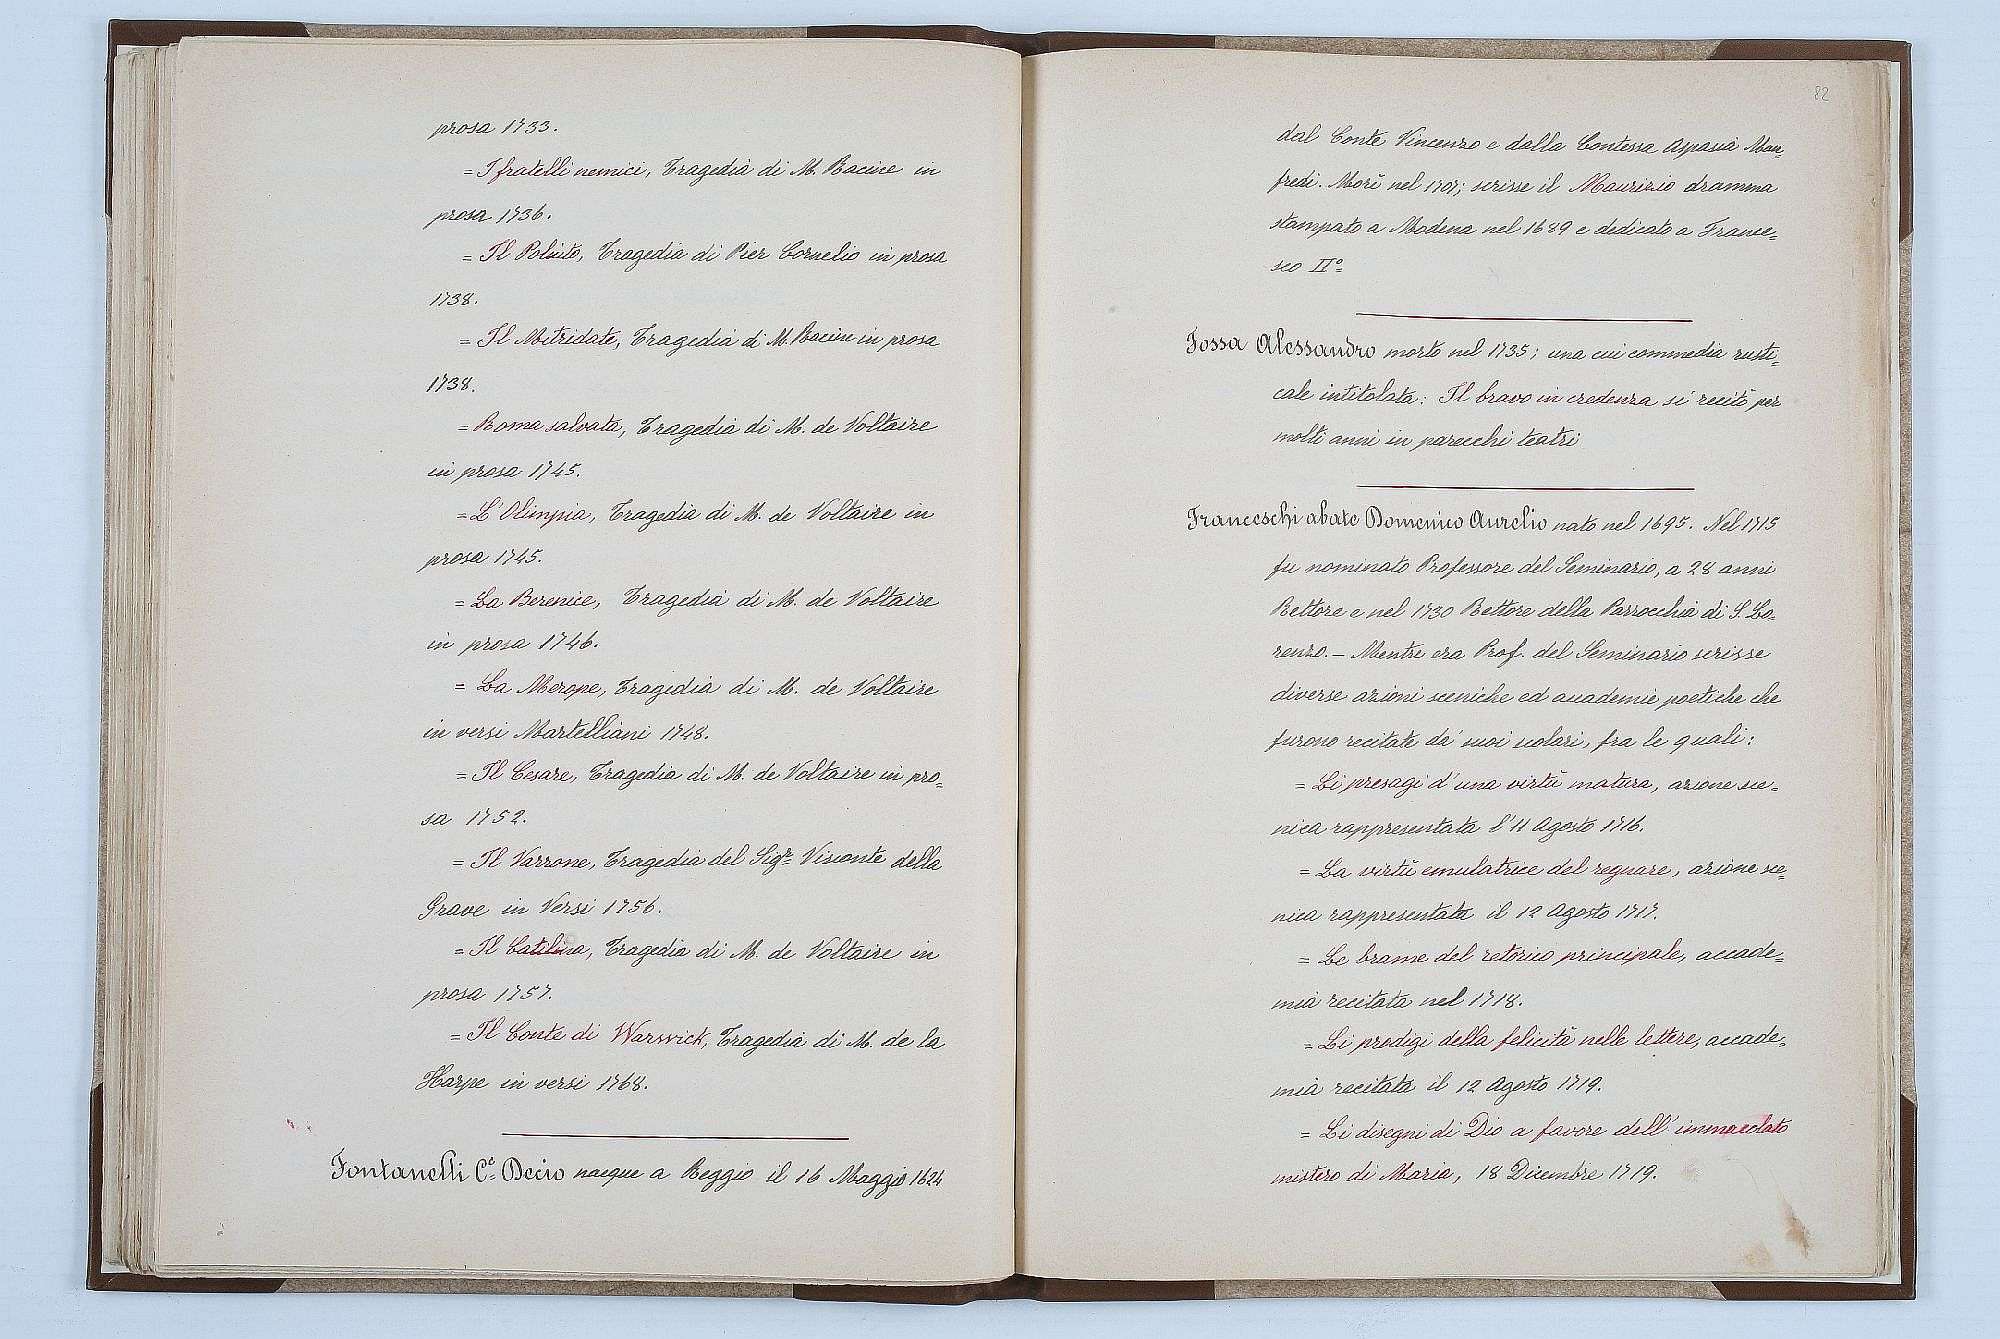 prosa 1733.
= I fratelli nemici, Tragedia di M. Racine in
prosa 1736.
= Il Poliuto, Tragedia di Pier Cornelio in prosa
1738.
= Il Mitridate, Tragedia di M. Racine in prosa
1738.
= Roma salvata, Tragedia di M. de Voltaire
in prosa 1745.
= L'Olimpia, Tragedia di M. de Voltaire in
prosa 1745.
= La Berenice, Tragedia di M. de Voltaire
in prosa 1746.
= La Merope, Tragedia di M. de Voltaire
in versi Martelliani 1748.
= Il Cesare, Tragedia di M. de Voltaire in pro=
sa 1752.
= Il Varrone, Tragedia del Sigr. Visconte della
Grave in Versi 1756.
= Il Catilina, Tragedia di M. de Voltaire in
prosa 1757.
= Il Conte di Warwick, Tragedia di M. de la
Harpe in versi 1768.
Fontanelli Ce. Decio nacque a Reggio il 16 Maggio 1624
82
dal Conte Vincenzo e dalla Contessa Aspasia Man=
fredi. Morì nel 1707; scrisse il Maurizio dramma
stampato a Modena nel 1689 e dedicato a France=
sco IIº
Fossa Alessandro morto nel 1735; una cui commedia rusti=
cale intitolata: Il bravo in credenza si recitò per
molti anni in parecchi teatri
Franceschi abate Domenico Aurelio nato nel 1695. Nel 1715
fu nominato Professore del Seminario, a 28 anni
Rettore e nel 1730 Rettore della Parrocchia di S. Lo=
renzo. – Mentre era Prof. del Seminario scrisse
diverse azioni sceniche ed accademie poetiche che
furono recitate da' suoi scolari, fra le quali:
= Li presagi d'una virtù matura, azione sce=
nica rappresentata l'11 Agosto 1716.
= La virtù emulatrice del regnare, azione sce=
nica rappresentata il 12 Agosto 1717.
= Le brame del retorico principale, accade=
mia recitata nel 1718.
= Li prodigi della felicità nelle lettere, accade=
mia recitata il 12 Agosto 1719.
= Li disegni di Dio a favore dell'immacolato
mistero di Maria, 18 Dicembre 1719.